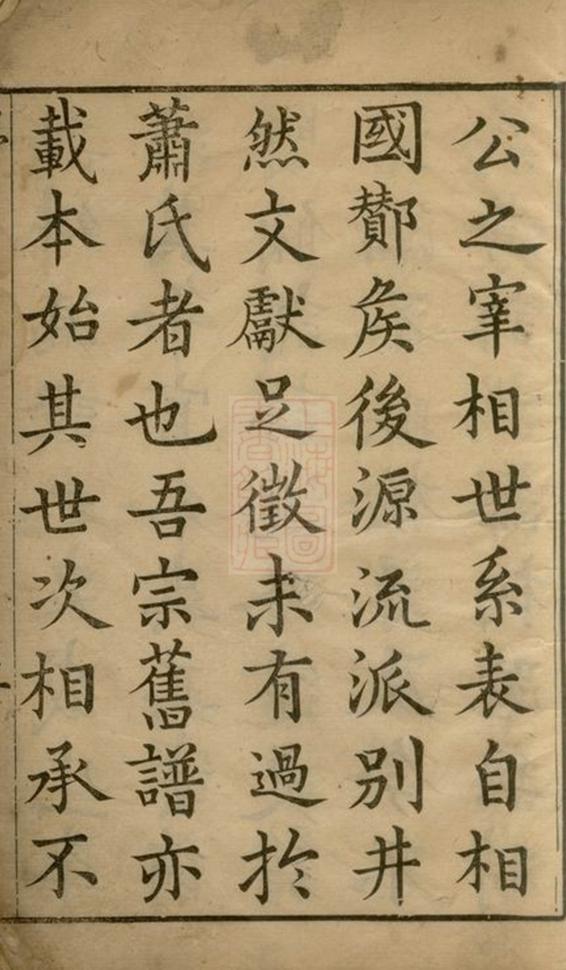 公之宰相世系表自相
國酇矦後源流派別井
然文獻足徵未有過於
蕭氏者也吾宗舊譜亦
載本始其世次相承不